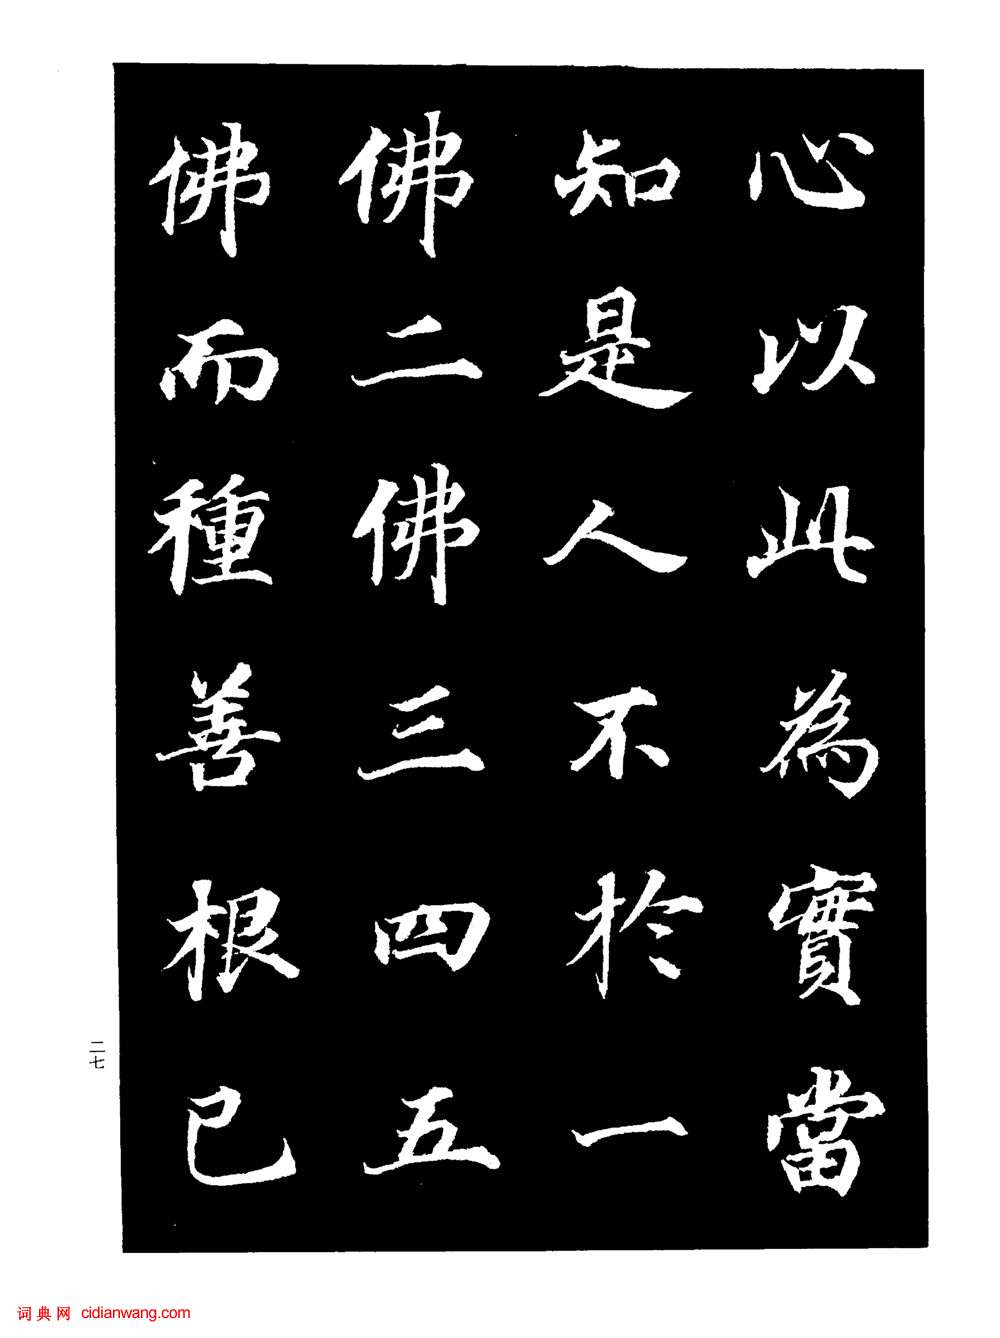 心以此為實當
知是人不於一
佛二佛三四五
佛而種善根已
二七
词典网 cidianwang.com